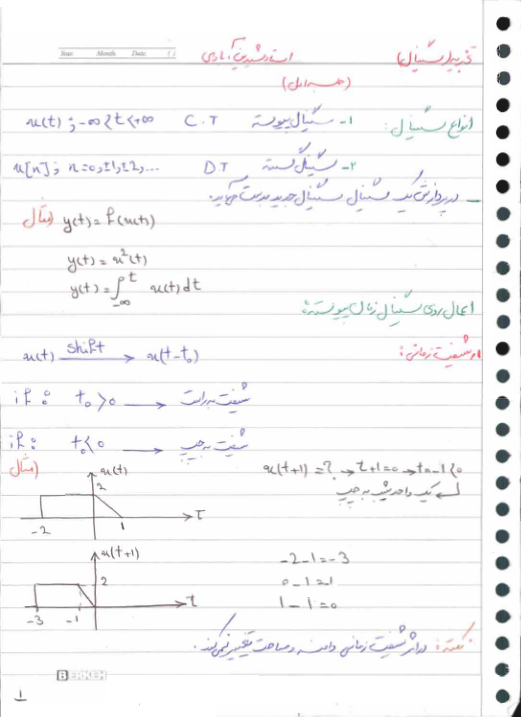 تجزیه (سیگنال) استاد رشیدی آبادی
Year. Month. Date. ( )
(جلسه اول)
انواع سیگنال:
۱- سیگنال پیوسته C.T x(t) ; -∞<t<+∞
۲- سیگنال گسسته D.T x[n] ; n=0,±1,±2,...
- در پردازش یک سیگنال سیگنال جدید بدست می‌آید.
مثال) y(t)=f(x(t))
y(t)=x²(t)
y(t)=∫_{-∞}^{t} x(t)dt
اعمال روی سیگنال زمان پیوسته:
۱- شیفت زمانی:
x(t) shift → x(t-t₀)
if : t₀>0 → شیفت به راست
if : t₀<0 → شیفت به چپ
مثال) x(t+1)=? → t+1=0 → t=-1<0
یک واحد شیفت به چپ
x(t)
2
-2 1 t
x(t+1)
2
-3 -1 t
-2-1=-3
0-1=1
1-1=0
نکته: در اثر شیفت زمانی دامنه و مساحت تغییر نمی‌کند.
BERKEH
1